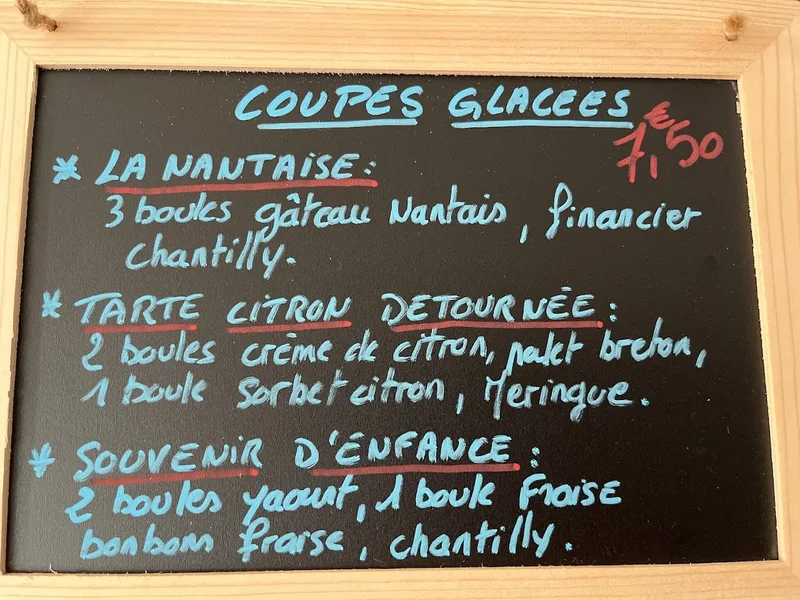 COUPES GLACEES
7,50 €
* LA NANTAISE :
3 boules gâteau Nantais, financier
chantilly.
* TARTE CITRON DETOURNÉE :
2 boules crème de citron, palet breton,
1 boule sorbet citron, Meringue.
* SOUVENIR D'ENFANCE :
2 boules yaourt, 1 boule Fraise
bonbons fraise, chantilly.